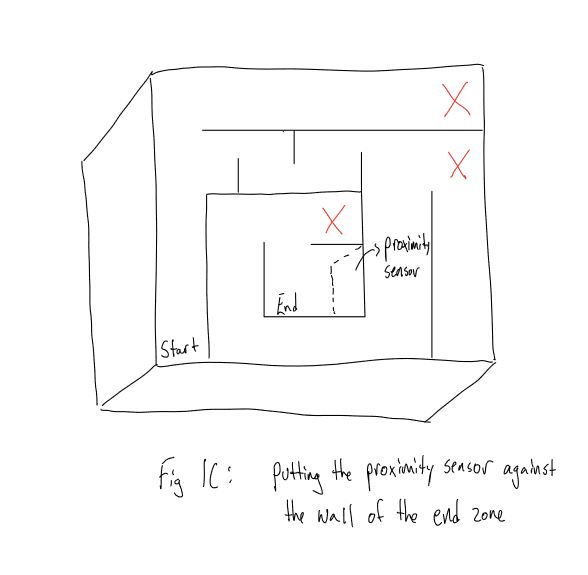 X
X
X
proximity
sensor
End
Start
Fig 1C: Putting the proximity sensor against
the wall of the end zone